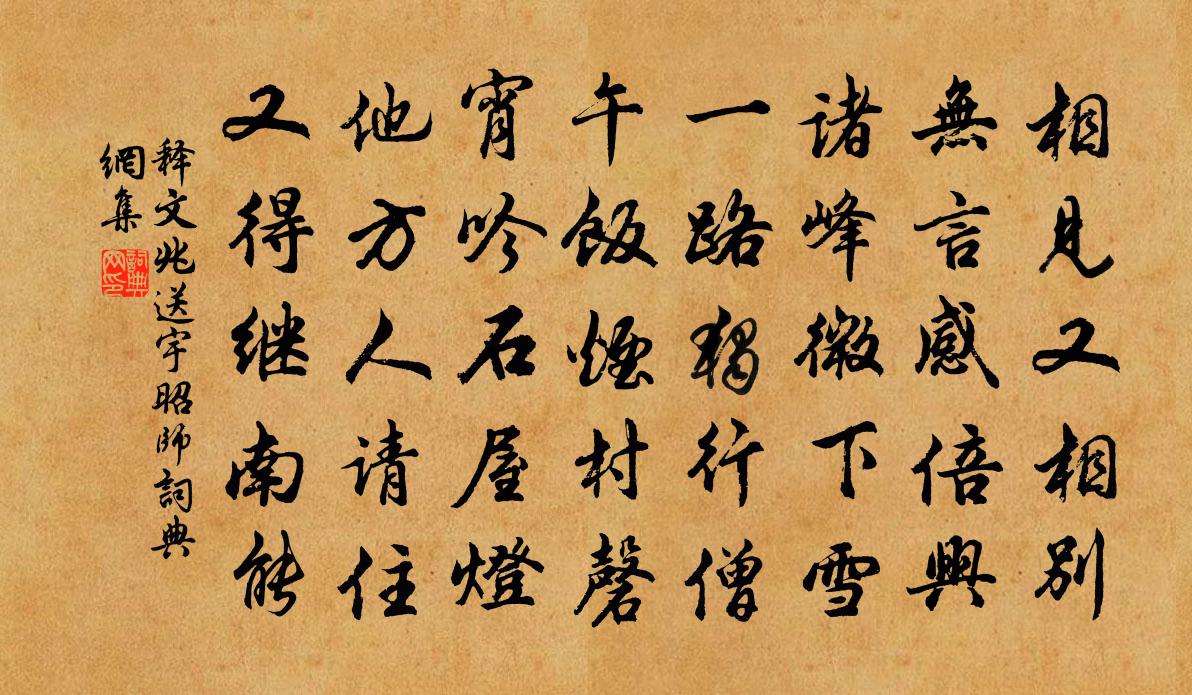 相见又相别
無言感倍興
诸峰微下雪
一路独行僧
午飯煙村磬
宵吟石屋燈
他方人请住
又得继南能
释文兆送宇昭师詞典
網集
詞典網印